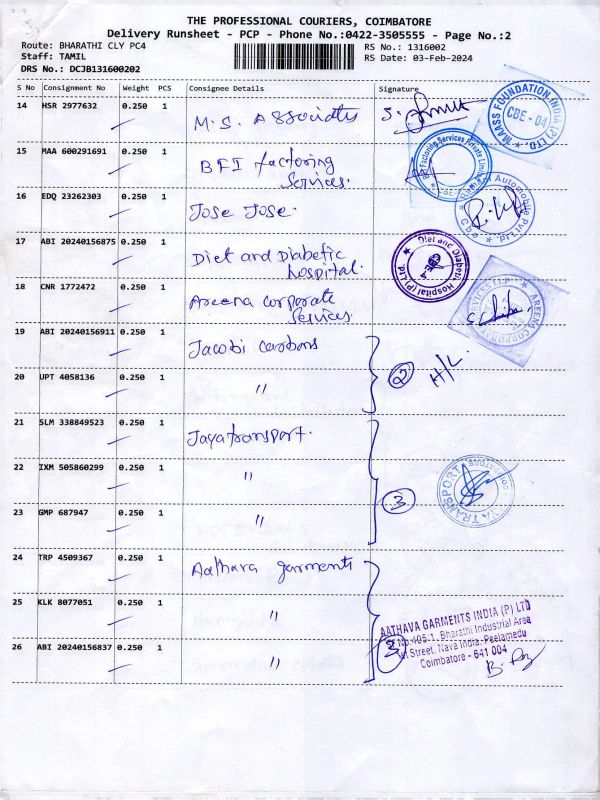 THE PROFESSIONAL COURIERS, COIMBATORE
Delivery Runsheet - PCP - Phone No.:0422-3505555 - Page No.:2
Route: BHARATHI CLY PC4
RS No.: 1316002
Staff: TAMIL
RS Date: 03-Feb-2024
DRS No.: DCJB131600202
S No Consignment No Weight PCS Consignee Details Signature
14 HSR 2977632 0.250 1 M.S. Associates
MAASS FOUNDATION INDIA (P) LTD.
CBE - 04
15 MAA 600291691 0.250 1 BFI factoring
Services.
Factoring Services Private Limited
16 EDQ 23262303 0.250 1 Jose Jose.
Automobile Pvt Ltd.
Cbe
17 ABI 20240156875 0.250 1 Diet and Diabetic
hospital.
Diet and Diabetic Hospital (P) Ltd
CBE-4
18 CNR 1772472 0.250 1 Areena Corporate
Services.
AREENA CORPORATE SERVICES LLP
19 ABI 20240156911 0.250 1 Jacobi Carbons
2 H/L
20 UPT 4058136 0.250 1 "
21 SLM 338849523 0.250 1 Jayatransport.
22 IXM 505860299 0.250 1 "
TRANSPORT
3
23 GMP 687947 0.250 1 "
24 TRP 4509367 0.250 1 Aathava garments
25 KLK 8077051 0.250 1 "
AATHAVA GARMENTS INDIA (P) LTD
No:405-1, Bharathi Industrial Area
1st Street, Nava India, Peelamedu
Coimbatore - 641 004
3
26 ABI 20240156837 0.250 1 "